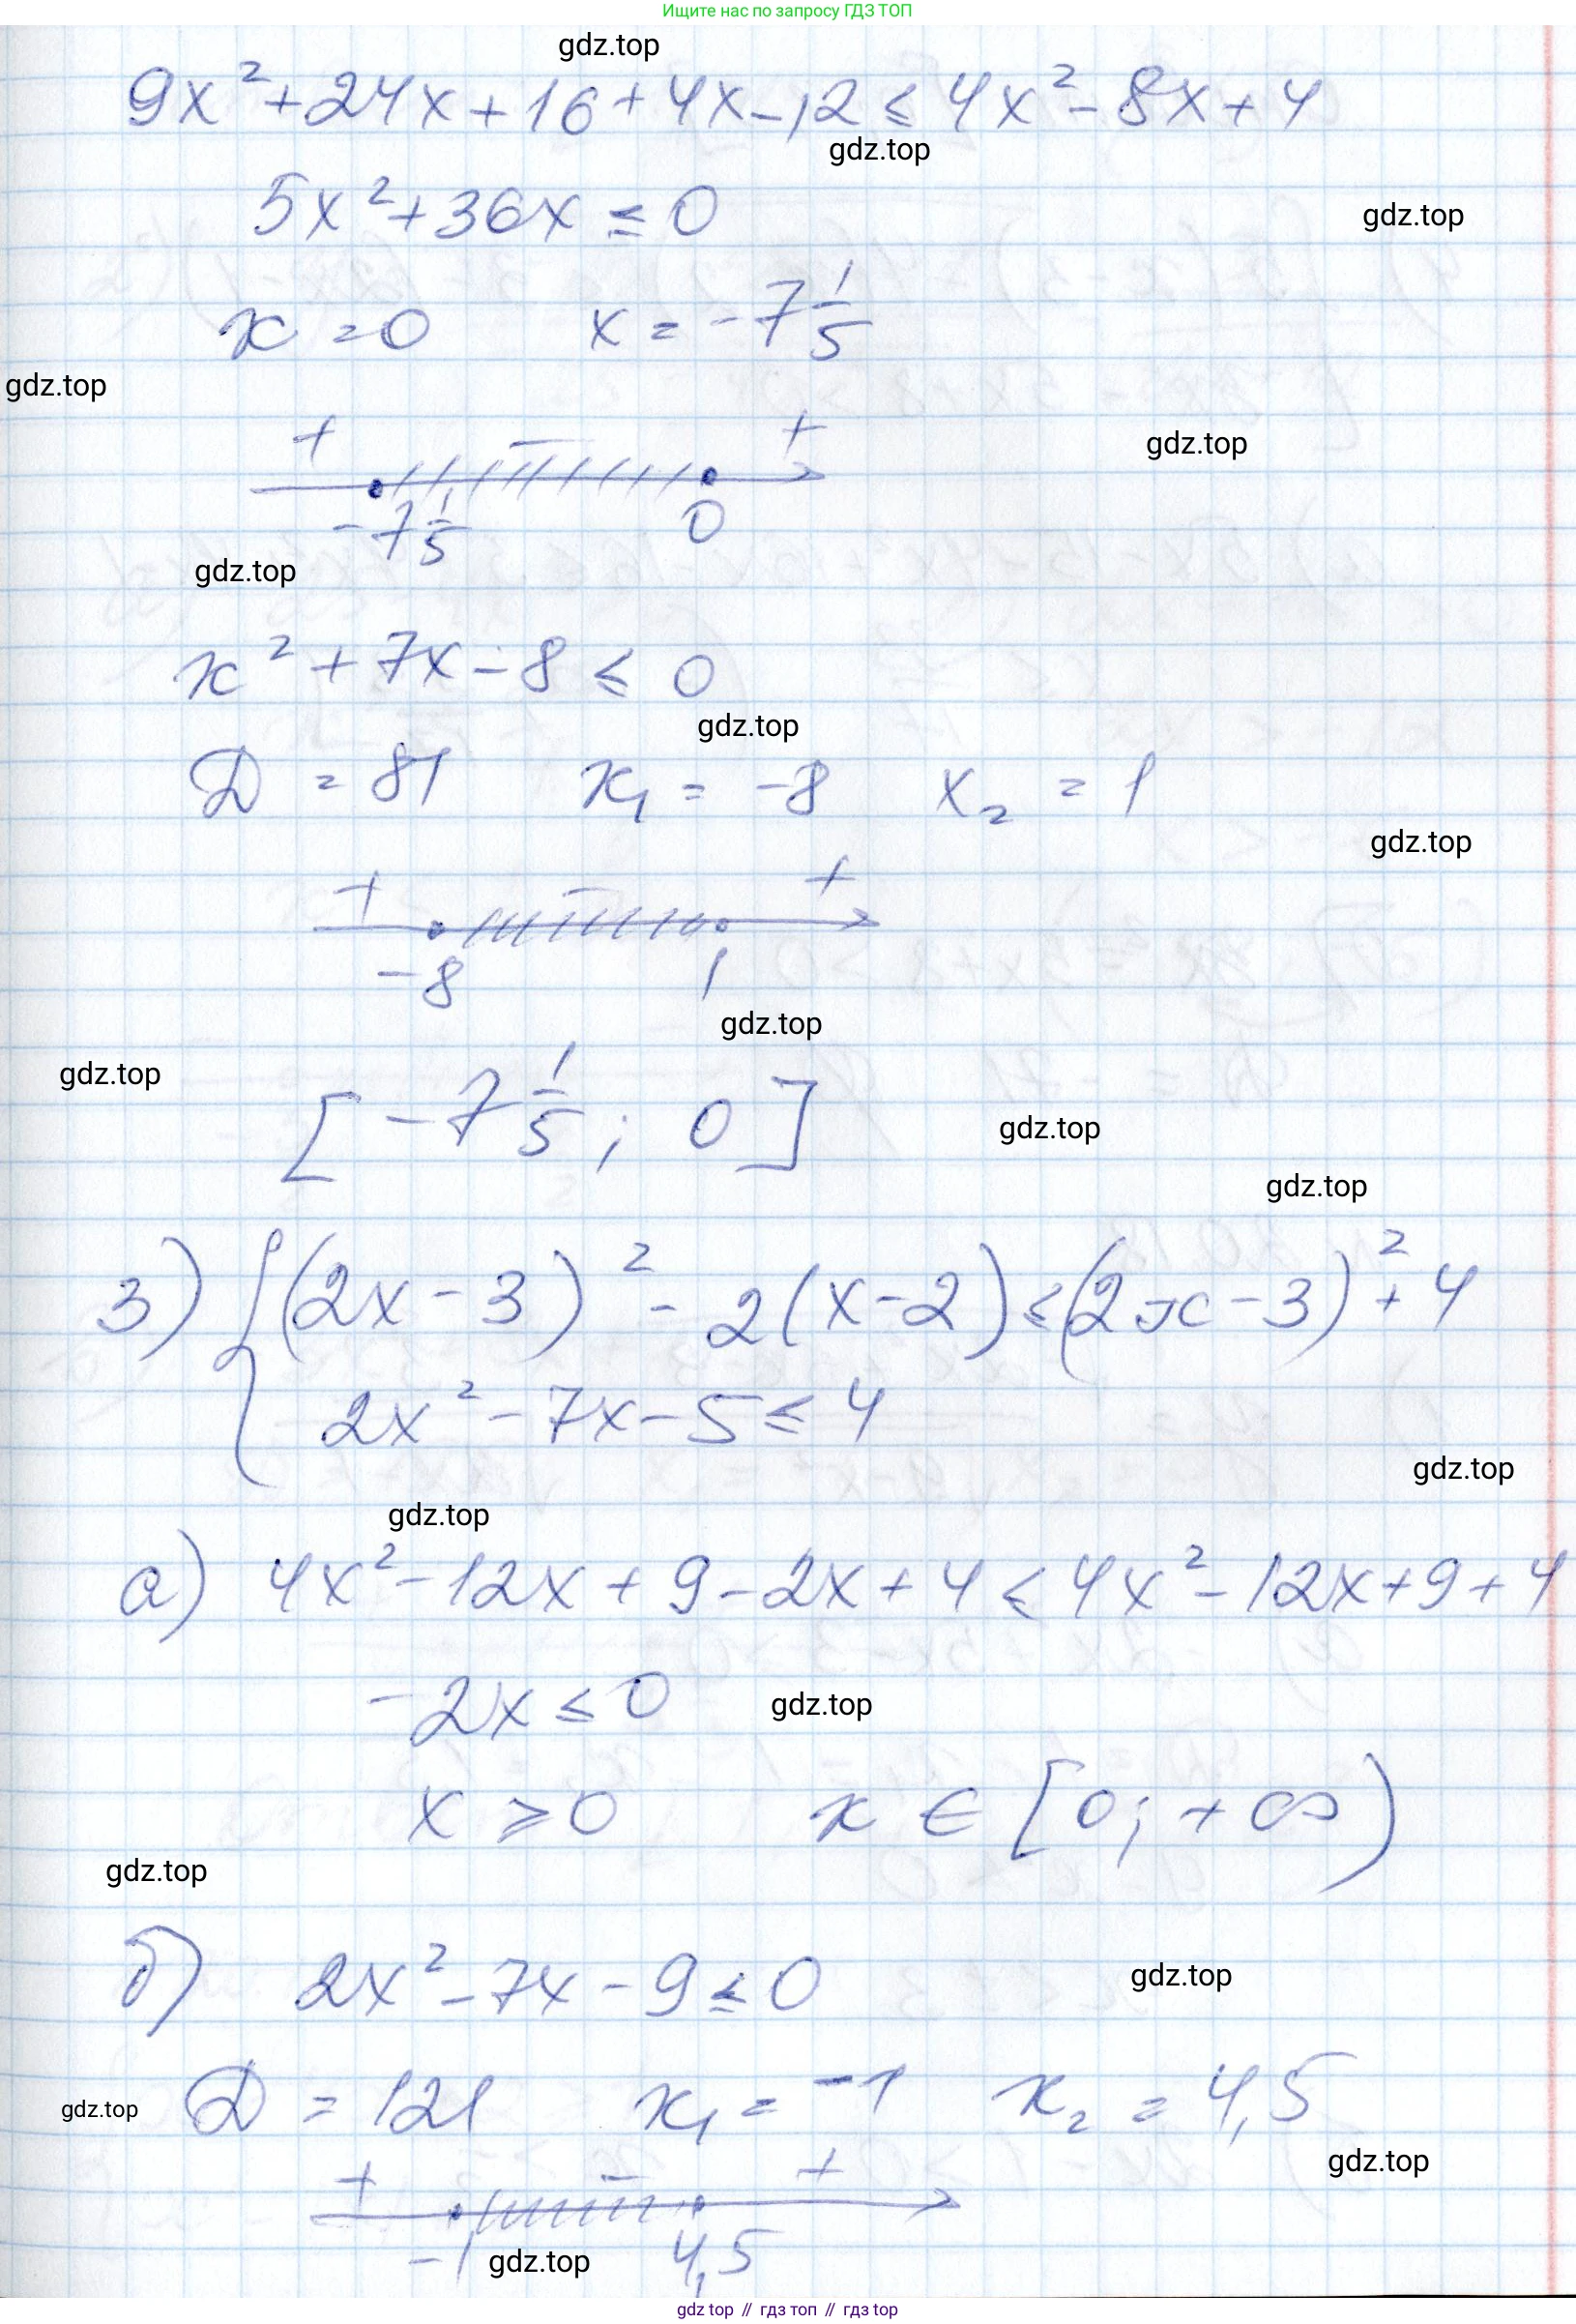 Ищите нас по запросу ГДЗ ТОП
gdz.top
9x² + 24x + 16 + 4x - 12 ≤ 4x² - 8x + 4
gdz.top
5x² + 36x ≤ 0
gdz.top
x = 0 x = -7 1/5
gdz.top
+ - +
gdz.top
-7 1/5 0
gdz.top
x² + 7x - 8 ≤ 0
gdz.top
D = 81 x₁ = -8 x₂ = 1
gdz.top
+ - +
-8 1
gdz.top
gdz.top
[-7 1/5; 0]
gdz.top
gdz.top
3) { (2x - 3)² - 2(x - 2) ≤ (2x - 3)² + 4
2x² - 7x - 5 ≤ 4
gdz.top
gdz.top
а) 4x² - 12x + 9 - 2x + 4 ≤ 4x² - 12x + 9 + 4
-2x ≤ 0
gdz.top
x ⩾ 0 x ∈ [0; +∞)
gdz.top
б) 2x² - 7x - 9 ≤ 0
gdz.top
D = 121 x₁ = -1 x₂ = 4,5
gdz.top
gdz.top
+ - +
-1 4,5
gdz.top
gdz top // гдз топ // гдз top